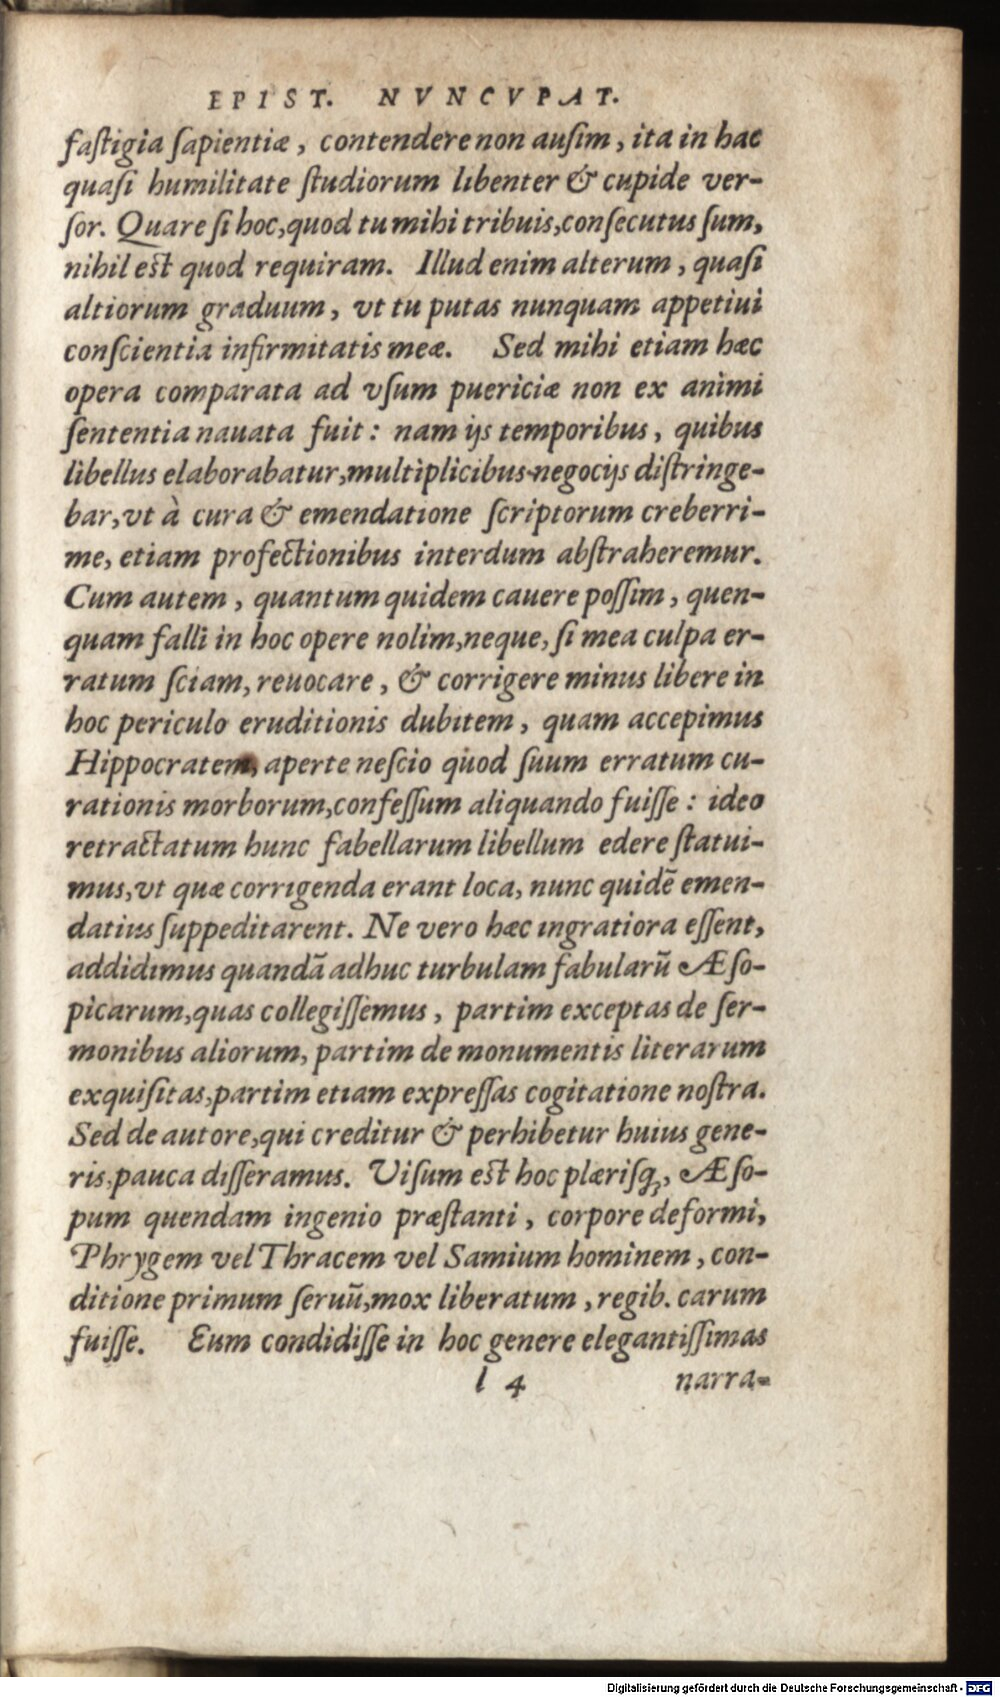 EPIST. NVNCVPAT.
faſtigia ſapientiæ, contendere non auſim, ita in hac
quaſi humilitate ſtudiorum libenter & cupide ver-
ſor. Quare ſi hoc, quod tu mihi tribuis, conſecutus ſum,
nihil est quod requiram. Illud enim alterum, quaſi
altiorum graduum, vt tu putas nunquam appetiui
conſcientia infirmitatis meæ. Sed mihi etiam hæc
opera comparata ad vſum puericiæ non ex animi
ſententia nauata fuit: nam ijs temporibus, quibus
libellus elaborabatur, multiplicibus negocijs diſtringe-
bar, vt à cura & emendatione ſcriptorum creberri-
me, etiam profectionibus interdum abſtraheremur.
Cum autem, quantum quidem cauere poſſim, quen-
quam falli in hoc opere nolim, neque, ſi mea culpa er-
ratum ſciam, reuocare, & corrigere minus libere in
hoc periculo eruditionis dubitem, quam accepimus
Hippocratem, aperte neſcio quod ſuum erratum cu-
rationis morborum, confeſſum aliquando fuiſſe: ideo
retractatum hunc fabellarum libellum edere ſtatui-
mus, vt quæ corrigenda erant loca, nunc quidē emen-
datius ſuppeditarent. Ne vero hæc ingratiora eſſent,
addidimus quandā adhuc turbulam fabularū Æſo-
picarum, quas collegiſſemus, partim exceptas de ſer-
monibus aliorum, partim de monumentis literarum
exquiſitas, partim etiam expreſſas cogitatione noſtra.
Sed de autore, qui creditur & perhibetur huius gene-
ris, pauca diſſeramus. Viſum est hoc plæriſq́;, Æſo-
pum quendam ingenio præſtanti, corpore deformi,
Phrygem vel Thracem vel Samium hominem, con-
ditione primum ſeruū, mox liberatum, regib. carum
fuiſſe. Eum condidiſſe in hoc genere elegantiſſimas
l 4 narra-
Digitalisierung gefördert durch die Deutsche Forschungsgemeinschaft - DFG